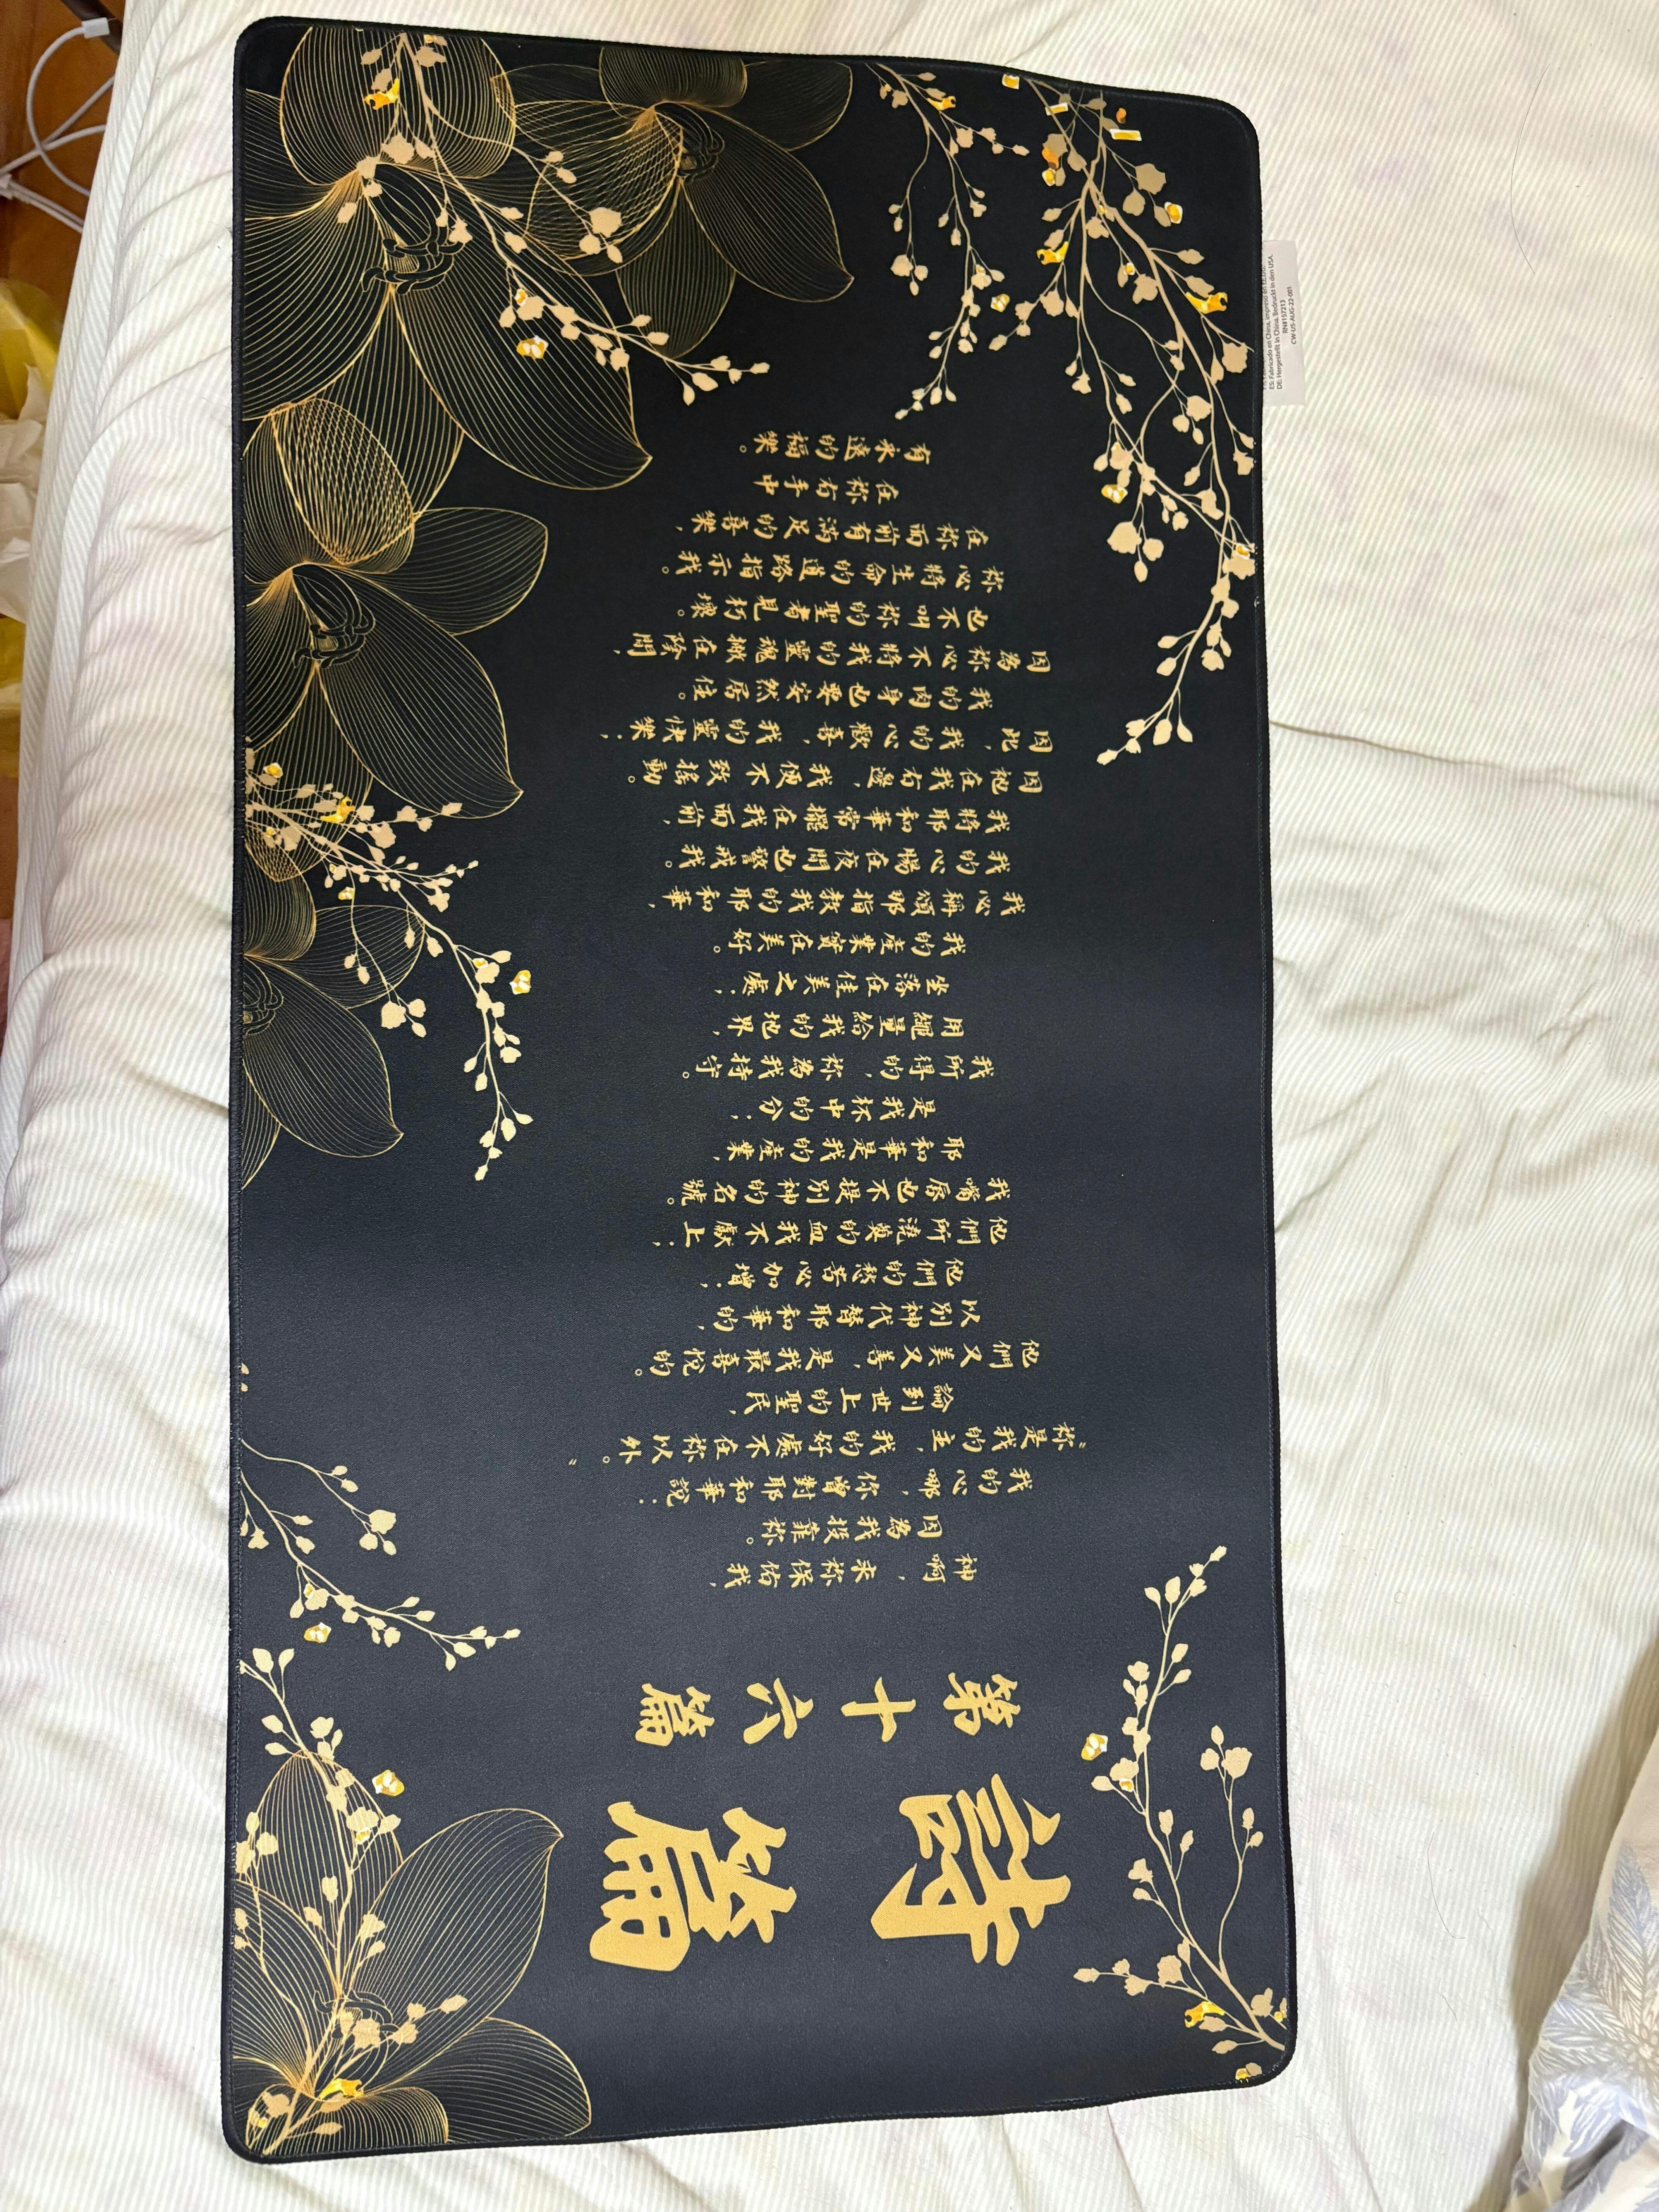 詩篇
第十六篇
神啊，求祢保佑我，
因為我投靠祢。
我的心哪，你曾對耶和華說：
"祢是我的主，我的好處不在祢以外。"
論到世上的聖民，
他們又美又善，是我最喜悅的。
以別神代替耶和華的，
他們的愁苦必加增；
他們所澆奠的血我不獻上；
我嘴唇也不提別神的名號。
耶和華是我的產業，
是我杯中的分；
我所得的，祢為我持守。
用繩量給我的地界，
坐落在佳美之處；
我的產業實在美好。
我必稱頌那指教我的耶和華，
我的心腸在夜間也警戒我。
我將耶和華常擺在我面前，
因祂在我右邊，我便不致搖動。
因此，我的心歡喜，我的靈快樂；
我的肉身也要安然居住。
因為祢必不將我的靈魂撇在陰間，
也不叫祢的聖者見朽壞。
祢必將生命的道路指示我。
在祢面前有滿足的喜樂，
在祢右手中
有永遠的福樂。
ES: Fabricado en China, impreso en EE.UU.
DE: Hergestellt in China, Gedruckt in den USA.
RN#157213
CW-US-AUG-22-001